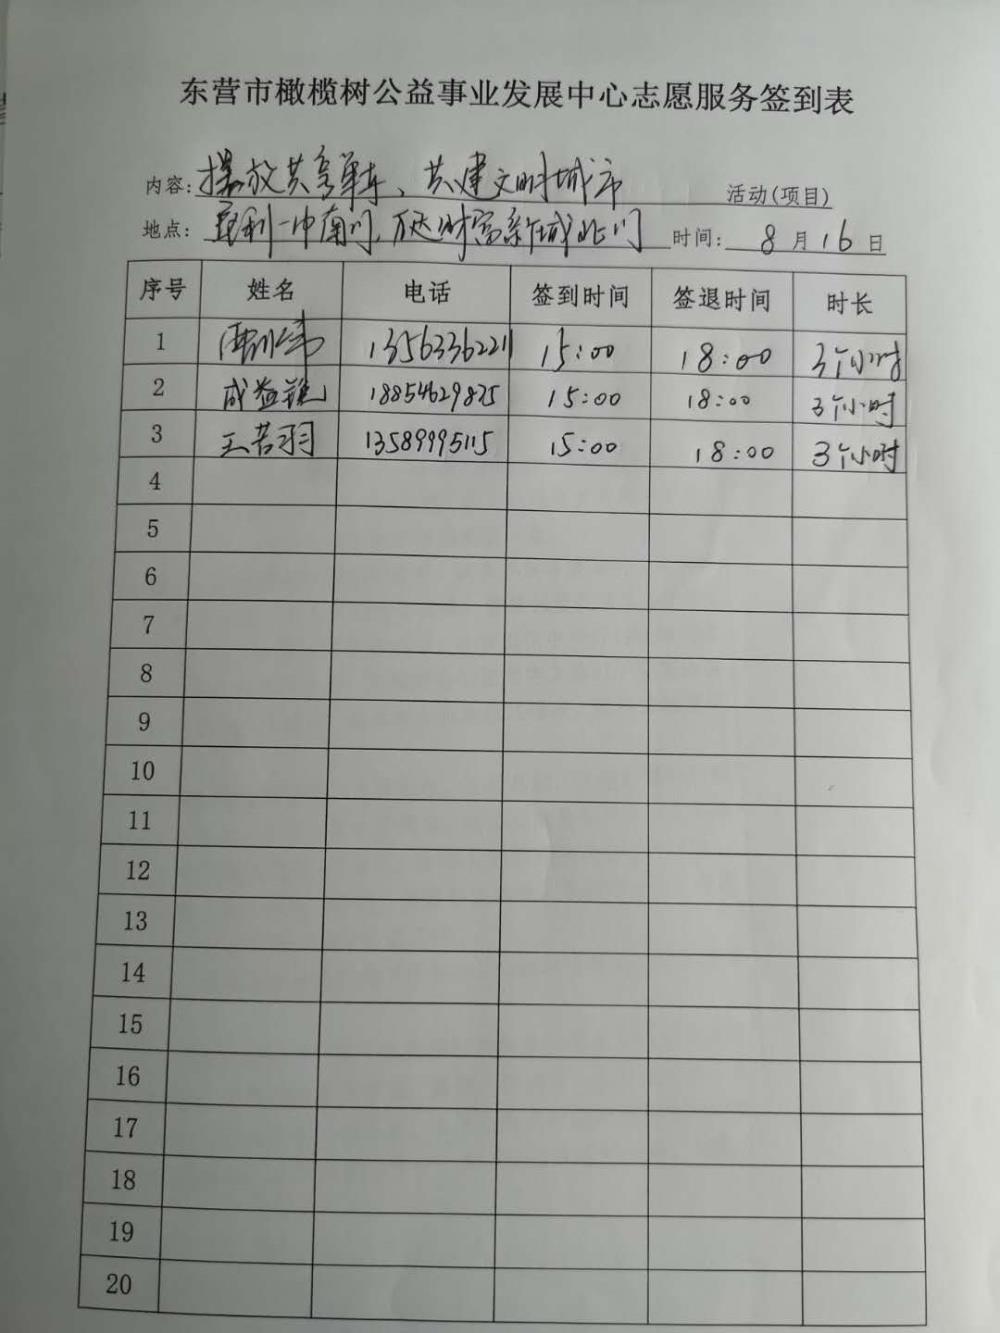 东营市橄榄树公益事业发展中心志愿服务签到表
内容: 摆放共享单车、共建文明城市 活动(项目)
地点: 垦利一中南门、万达财富新城北门 时间: 8 月 16 日
序号 姓名 电话 签到时间 签退时间 时长
1 13563362211 15:00 18:00 3个小时
2 成益 18854629825 15:00 18:00 3个小时
3 王若羽 13589995115 15:00 18:00 3个小时
4
5
6
7
8
9
10
11
12
13
14
15
16
17
18
19
20